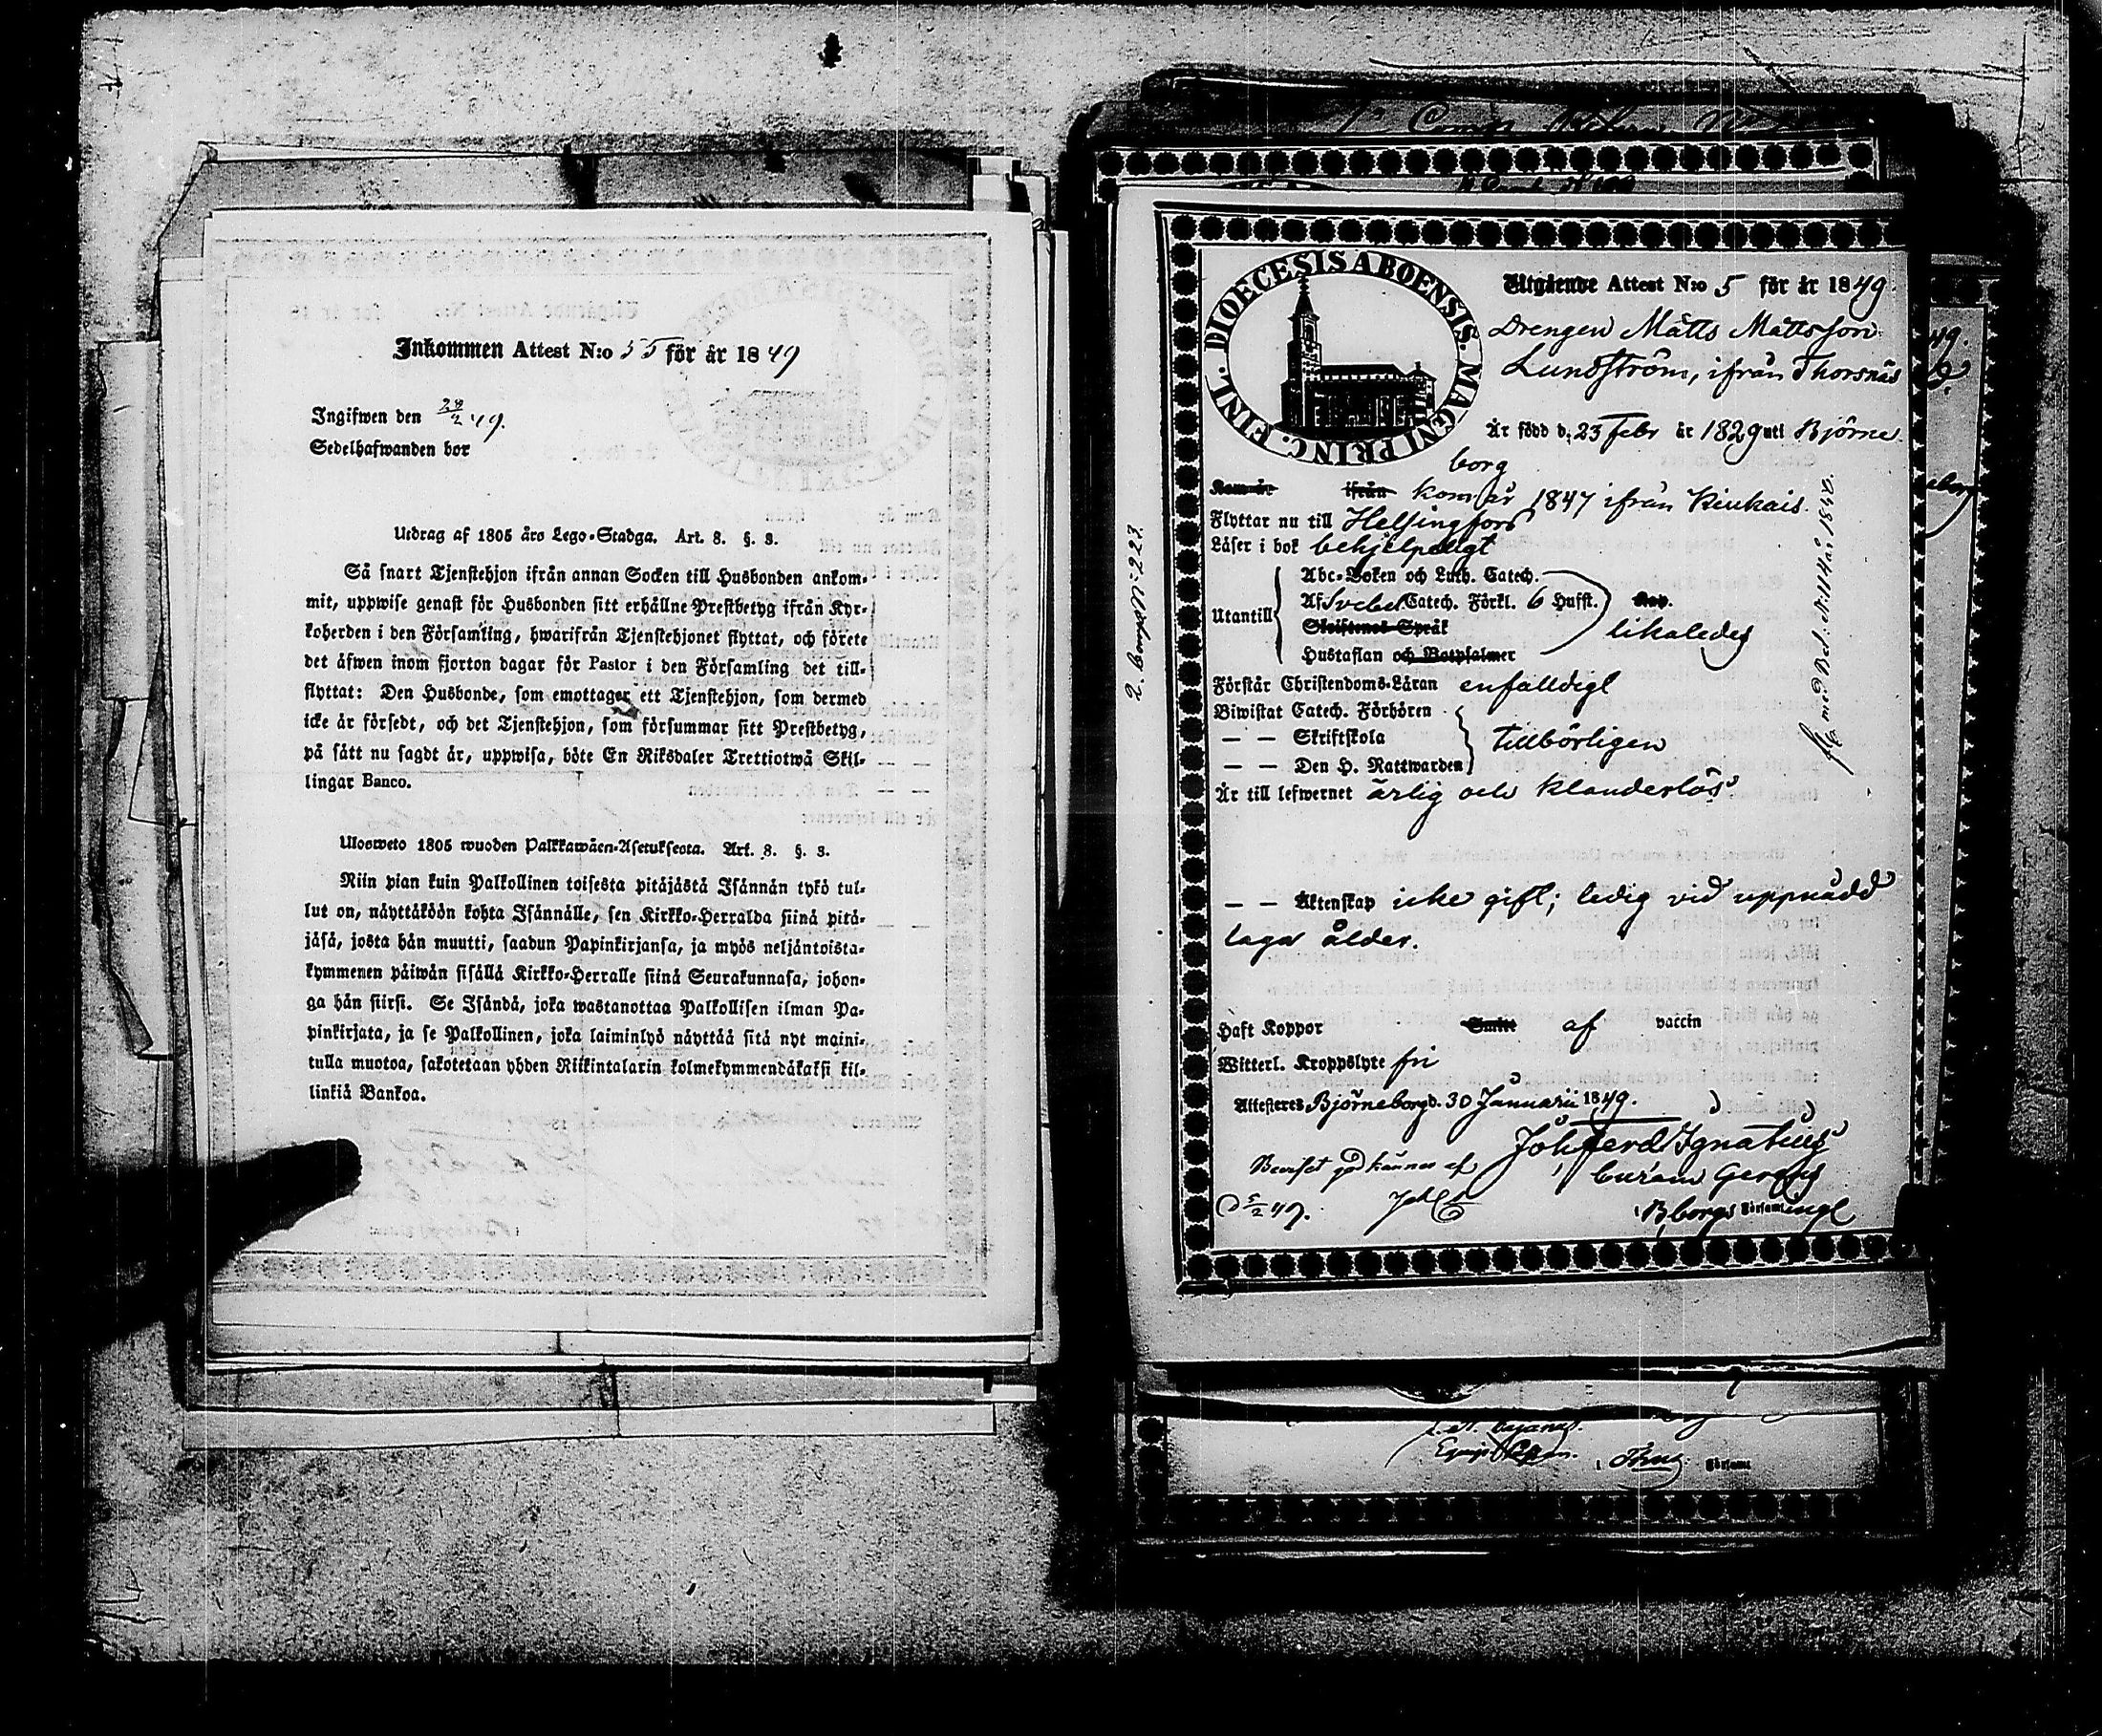 Inkommen Attest N:o 55 för år 1849
Ingifwen den 28/2 49.
Sedelhafwanden bor
Utdrag af 1805 års Lego-Stadga. Art. 8. §. 3.
Så snart Tjenstehjon ifrån annan Socken till Husbonden ankom-
mit, uppwise genast för Husbonden sitt erhållne Prestbetyg ifrån Kyr-
koherden i den Församling, hwarifrån Tjenstehjonet flyttat, och förete
det äfwen inom fjorton dagar för Pastor i den Församling det till-
flyttat: Den Husbonde, som emottager ett Tjenstehjon, som dermed
icke är försedt, och det Tjenstehjon, som försummar sitt Prestbetyg,
på sätt nu sagdt är, uppwisa, böte En Riksdaler Trettiotwå Skil-
lingar Banco.
Uloosweto 1805 wuoden Palkkawäen-Asetuksesta. Art. 8. §. 3.
Niin pian kuin Palkollinen toisesta pitäjästä Isännän tykö tul-
lut on, näyttäköön kohta Isännälle, sen Kirkko-Herralda siinä pitä-
jäsä, josta hän muutti, saadun Papinkirjansa, ja myös neljäntoista-
kymmenen päiwän sisällä Kirkko-Herralle siinä Seurakunnasa, johon-
ga hän siirsi. Se Isändä, joka wastanottaa Palkollisen ilman Pa-
pinkirjata, ja se Palkollinen, joka laiminlyö näyttää sitä nyt maini-
tulla muotoa, sakotetaan yhden Riikintalarin kolmekymmendäkaksi kil-
linkiä Bankoa.
DIOECESIS ABOENSIS. MAGNI PRINC. FINL.
Utgående Attest N:o 5 för år 1849.
Drengen Matts Mattsson
Lundström, ifrån Thorsnäs
Är född d. 23 Febr år 1829 uti Björne
borg
Kom år ifrån kom år 1847 ifrån Kiukais.
Flyttar nu till Helsingfors
Läser i bok behjelpeligt
Abc-Boken och Luth. Catech.
Utantill Af Svebel. Catech. Förkl. 6 Hufst.
Skriftenes Språk likaledes
Hustaflan och Botpsalmer
Förstår Christendoms-Läran enfaldigt
Biwistat Catech. Förhören
— — Skriftskola tillbörligen
— — Den H. Nattwarden
Är till lefwernet ärlig och klanderlös
— — Äktenskap icke gift; ledig vid uppnådd
laga ålder.
Haft Koppor Smitt af vaccin
Witterl. Kroppslyte fri
Attesteres Björneborg d. 30 Januarii 1849.
Joh ferd Ignatius
Beviset godkännes af
curam gerens
d 5/2 49.
i Bborgs Församlingl
2. Comp. N: 223.